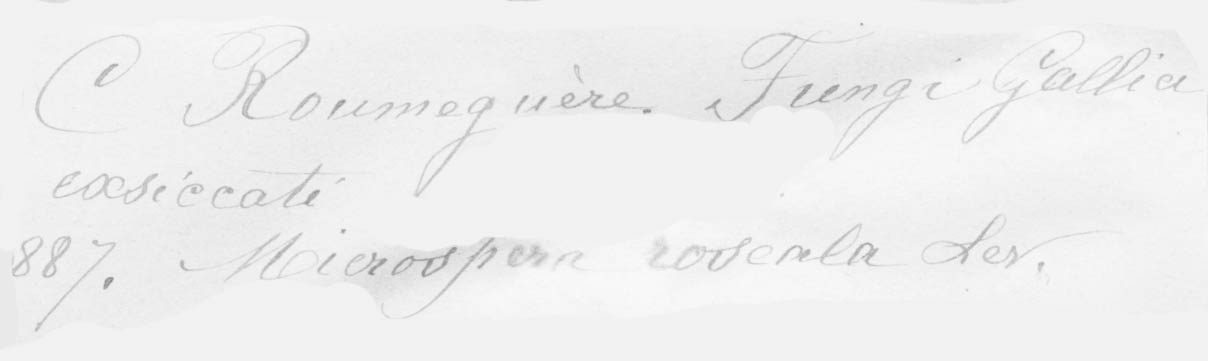 C Roumeguère. Fungi Gallici
exsiccati
887. Microspera roseala Lev.